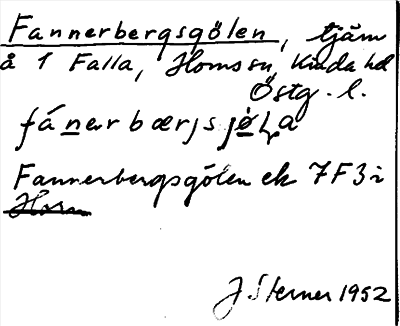 Fannerbergsgölen, tjäm
å 1 Falla, Horns sn, Kinda hd
Östg. l.
fánar bærjs jøLa
Fannerbergsgölen ek 7F3i
Horn
J Sterner 1952